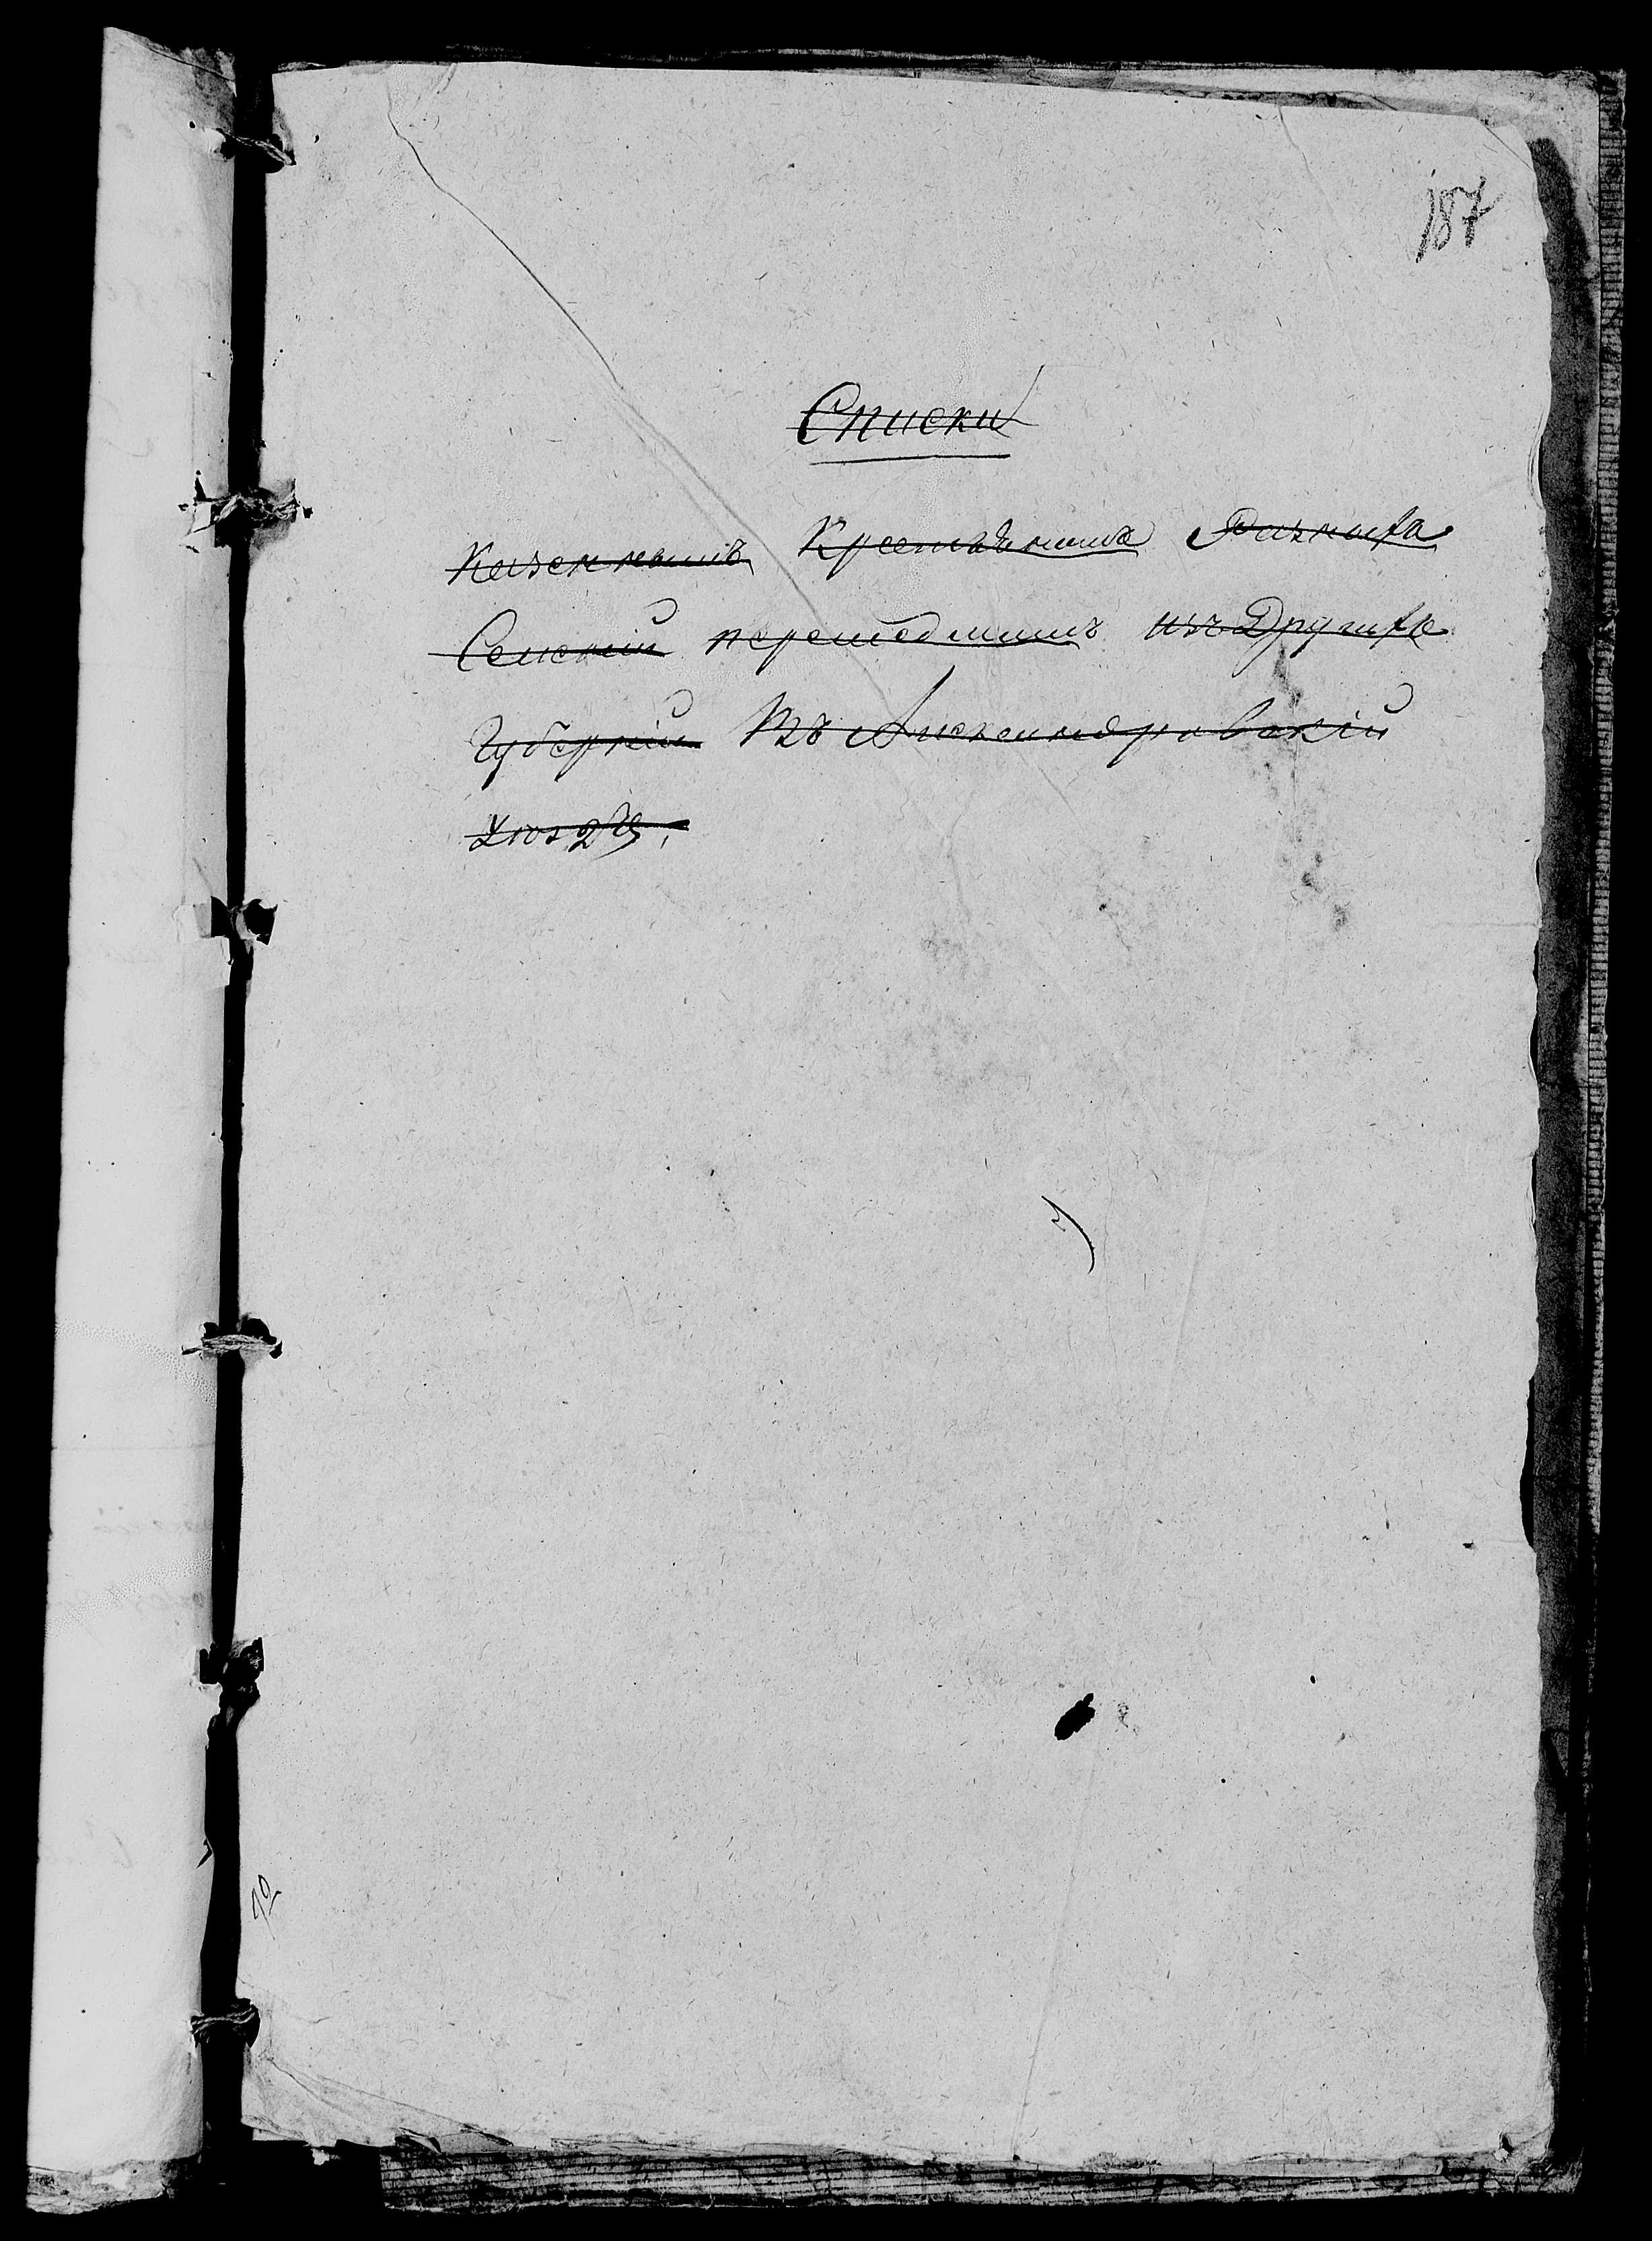 187
Списки
Казеннымъ Крестьянамъ Разныхъ
Селеній перешедшимъ изъ Другихъ
Губерній Въ Александровскій
Уюздъ.